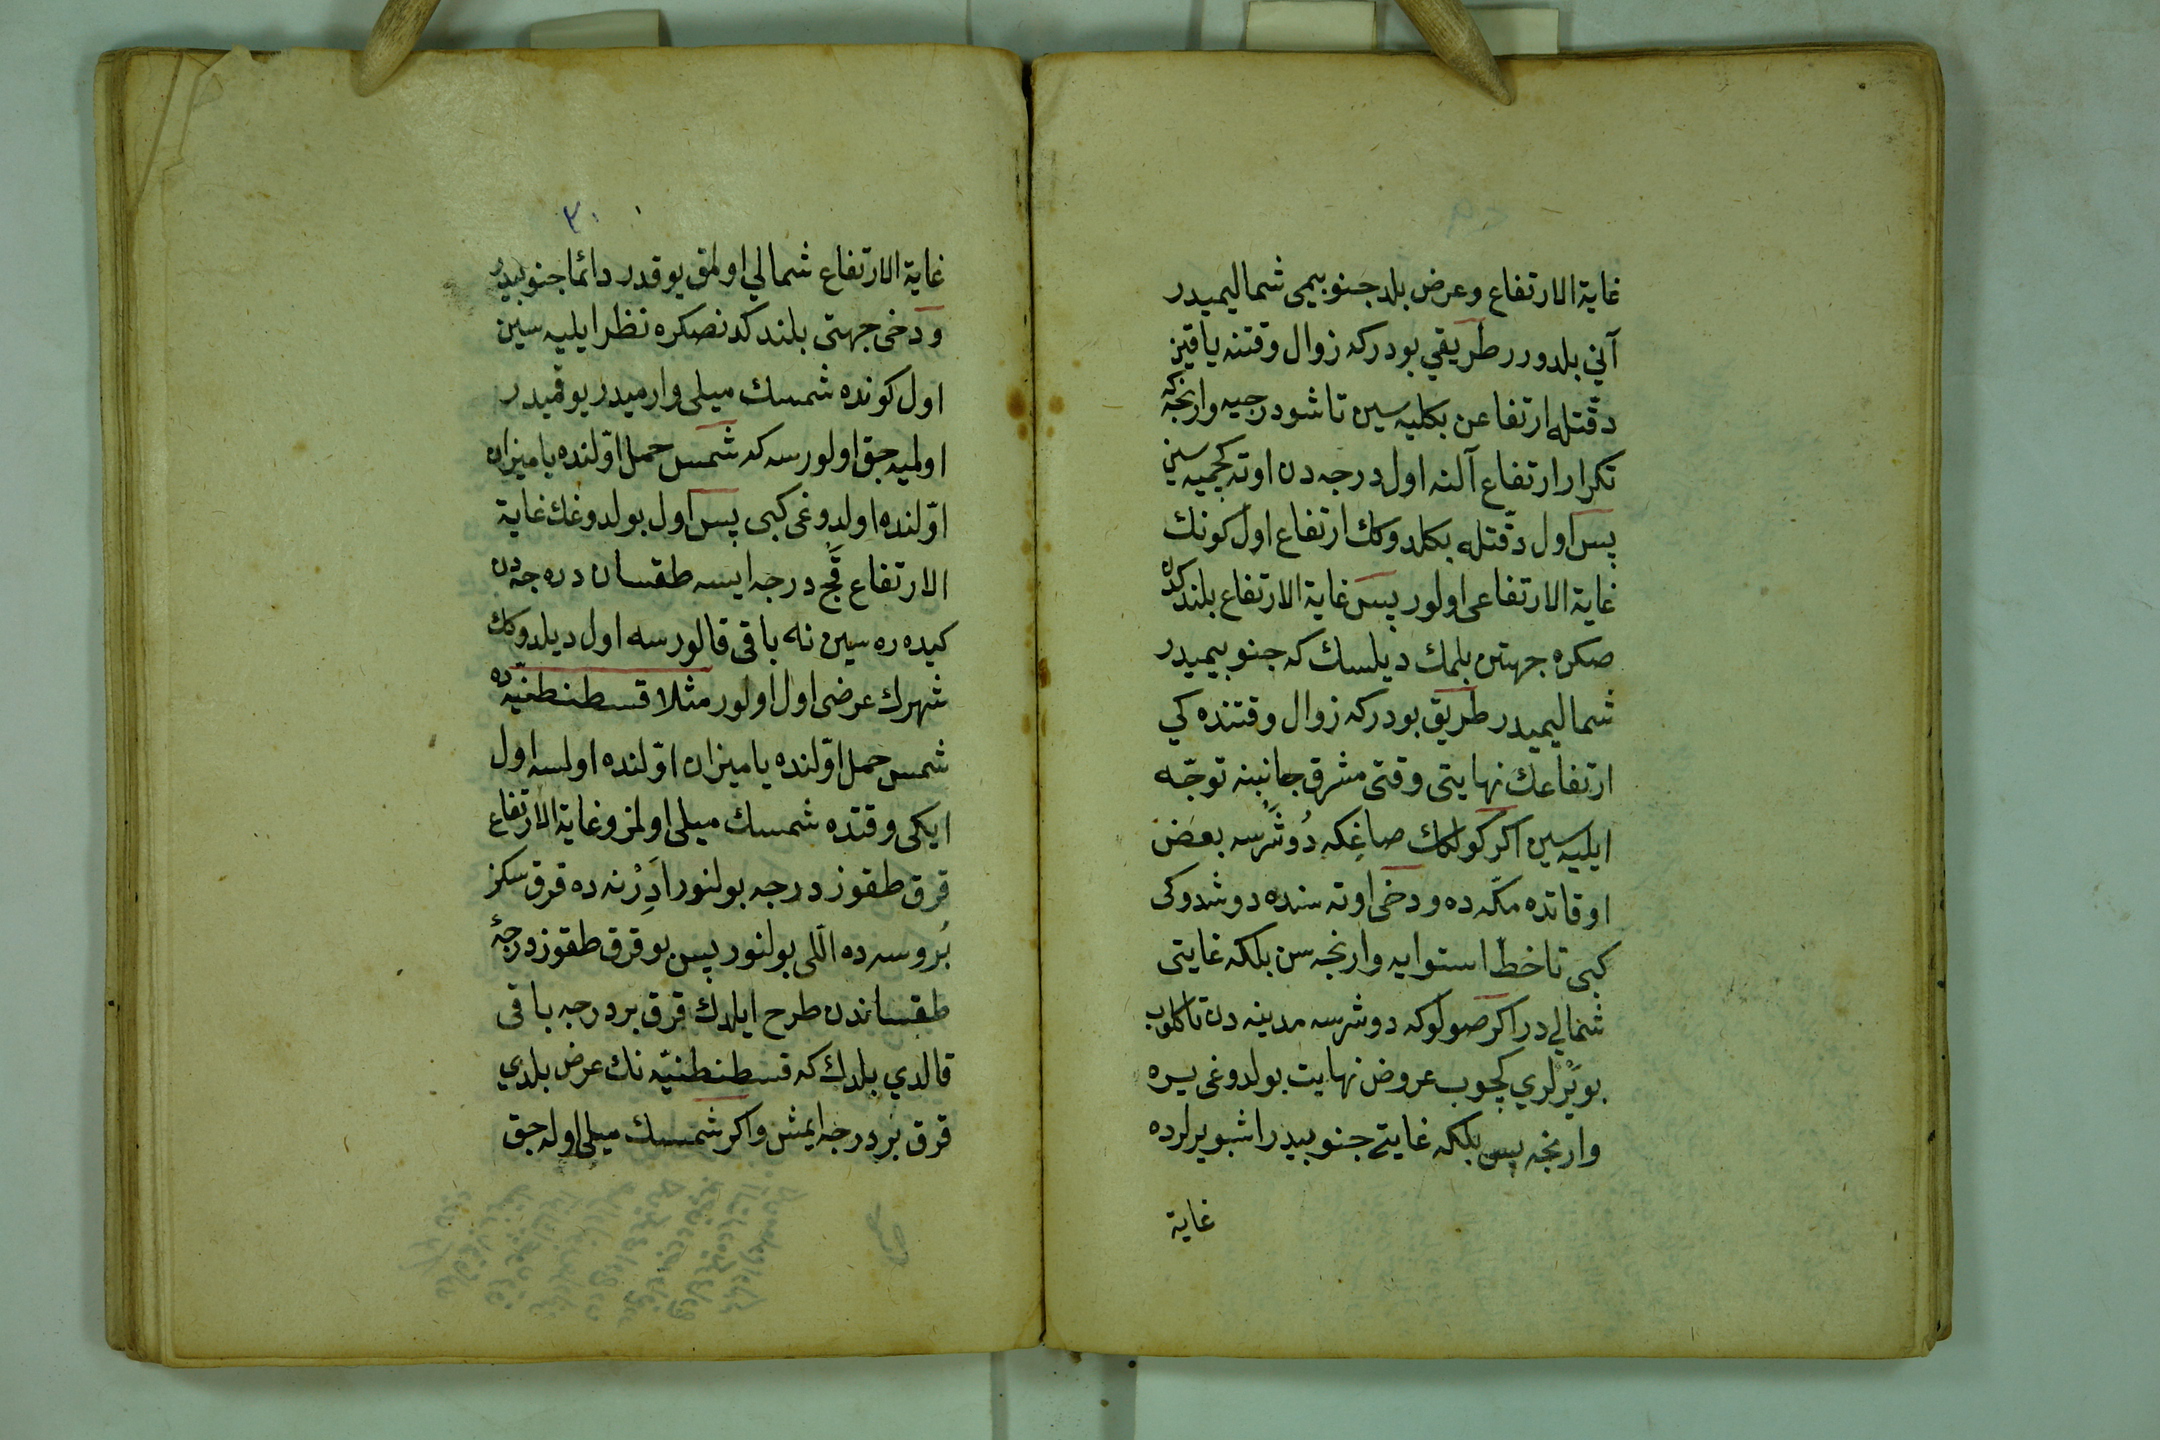 غاية الارتفاع وعرض بلد جنوبيمى شماليميدر
آني بلدورر طريقي بودركه زوال وقتنه ياقين
دقتله ارتفاعن بكليه سين تا شودرجيه وارنجه كه
تكرار ارتفاع آلنه اول درجه دن اوته كچميه سين
پس اول دقتله بكلدوكك ارتفاع اول كونك
غاية الارتفاعى اولور پس غاية الارتفاع بلندكدن
صكره جهتن بلمك ديلسك كه جنوبيميدر
شماليميدر طريق بودركه زوال وقتنده كي
ارتفاعك نهايتى وقتى مشرق جانبنه توجّه
ايليه سين اكر كولكك صاغكه دُوشَرسه بعض
اوقاتده مكّه ده ودخى اوته سنده دوشدوكى
كبى تا خط استوايه وارنجه سن بلكه غايتى
شمالي در اكر صولوكه دوشرسه مدينه دن تا كلوب
بويَرلري كچوب عروض نهايت بولدوغى يره
وارنجه پس بلكه غايتے جنوبيدر اشبو يرلرده
غاية
٣٠
غاية الارتفاع شمالي اولمق يوقدر دائما جنوبيدر
ودخى جهتى بلندكدنصكره نظر ايليه سين
اول كونده شمسك ميلى وارميدر يوقميدر
اولميه جق اولورسه كه شمس حمل اوّلنده يا ميزان
اوّلنده اولدوغى كبى پس اول بولدوغك غاية
الارتفاع قَچ درجه ايسه طقسان دره جه دن
كيده ره سين نه باقى قالورسه اول ديلدوكك
شهرك عرضى اول اولور مثلا قسطنطنيّه ده
شمس حمل اوّلنده يا ميزان اوّلنده اولسه اول
ايكى وقتده شمسك ميلى اولمز وغاية الارتفاع
قرق طقوز درجه بولنور ادِرْنه ده قرق سكز
بُروسه ده اللى بولنور پس بو قرق طقوز درجهٔ
طقساندن طرح ايلدك قرق بر درجه باقى
قالدي بلدك كه قسطنطنيّه نك عرض بلدي
قرق بر درجه ايمش واكر شمسك ميلى اوله جق